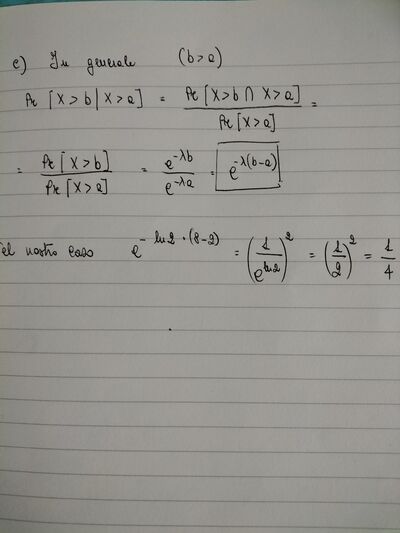 c) In generale (b>a)
Pr [X>b | X>a] = Pr [X>b ∩ X>a] / Pr [X>a] =
= Pr [X>b] / Pr [X>a] = e^{-λb} / e^{-λa} = e^{-λ(b-a)}
el nostro caso e^{-ln2·(8-2)} = (1/e^{ln2})^2 = (1/2)^2 = 1/4